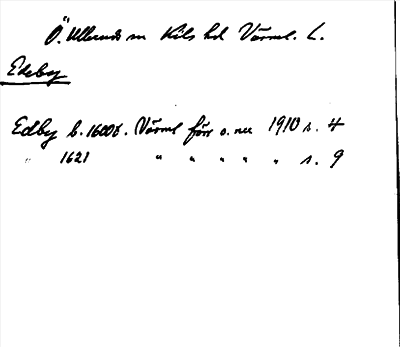 Ö. Ullerud sn Kils hd Värml. L.
Edeby
Edby b. 1600t. Värml förr o. nu 1910 s. 4
" 1621 " " " " " s. 9